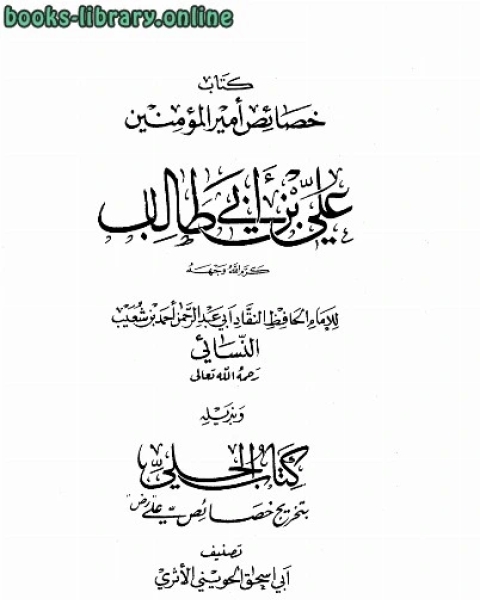 books-library.online
كتاب
خصائص أمير المؤمنين
علي بن أبي طالب
كرم الله وجهه
للإمام الحافظ النقاد أبي عبد الرحمن أحمد بن شعيب
النسائي
رحمه الله تعالى
وبذيله
كتاب الحلي
بتخريج خصائص علي رضي
تصنيف
أبي إسحاق الحويني الأثري